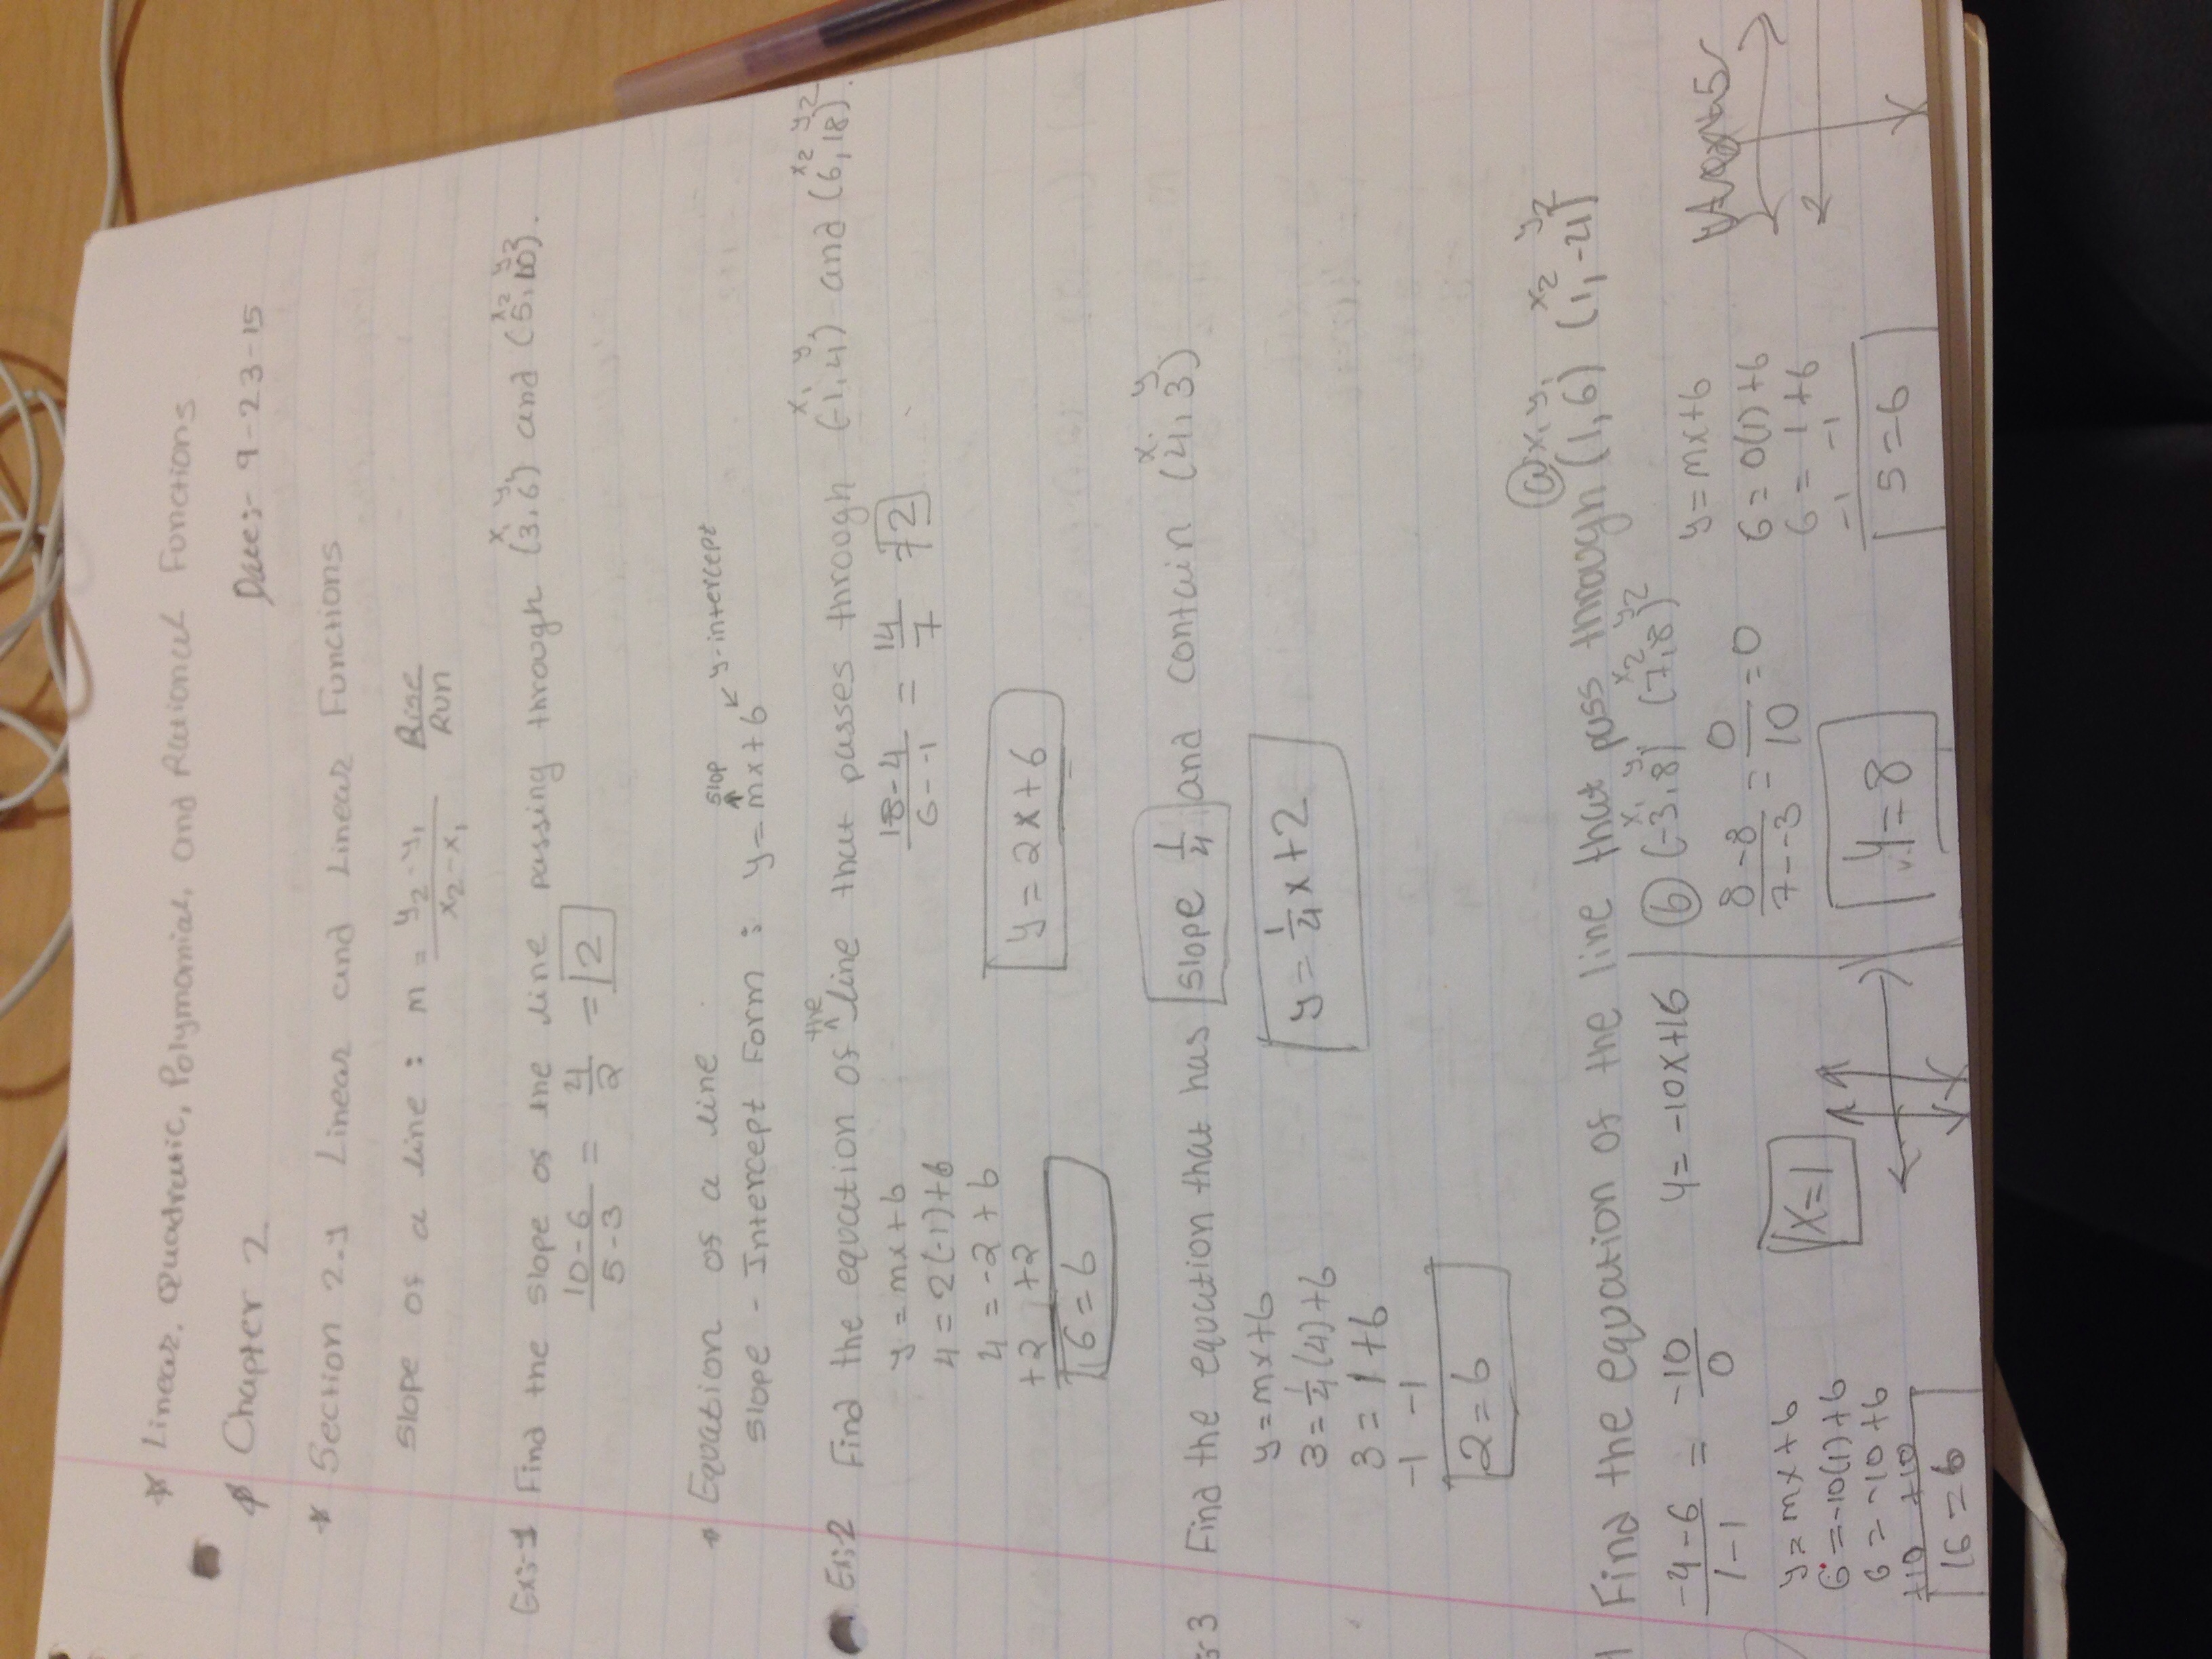 * Linear, Quadratic, Polynomial, and Rational Functions
* Chapter 2 Date:- 9-23-15
* Section 2.4 Linear and Linear Functions
Slope of a line : m = y2-y1 / x2-x1 Rise / Run
x1 y1 x2 y2
Ex:-1 Find the slope of the line passing through (3,6) and (5,10).
10-6 / 5-3 = 4/2 = 2
* Equation of a line
slop
Slope - Intercept Form : y = mx+b y-intercept
x1 y1 x2 y2
Ex:2 Find the equation of the line that passes through (-1,4) and (6,18).
y = mx+b 18-4 / 6--1 = 14/7 = 2
4 = 2(-1)+b
4 = -2+b y = 2x+6
+2 +2
6 = b
x1 y
:3 Find the equation that has slope 1/4 and contain (4,3)
y = mx+b
3 = 1/4(4)+b y = 1/4x+2
3 = 1+b
-1 -1
2 = b
a x1 y1 x2 y2
Find the equation of the line that pass through (1,6) (1,-4)
-4-6 / 1-1 = -10/0 y = -10x+16
y = mx+b
6 = -10(1)+b
6 = -10+b
+10 +10
16 = b
x = 1
b x1 y1 x2 y2
(-3,8) (7,8)
8-8 / 7--3 = 0/10 = 0
y = 8
y = mx+b
6 = 0(1)+b
6 = 1+b
-1 -1
5 = b